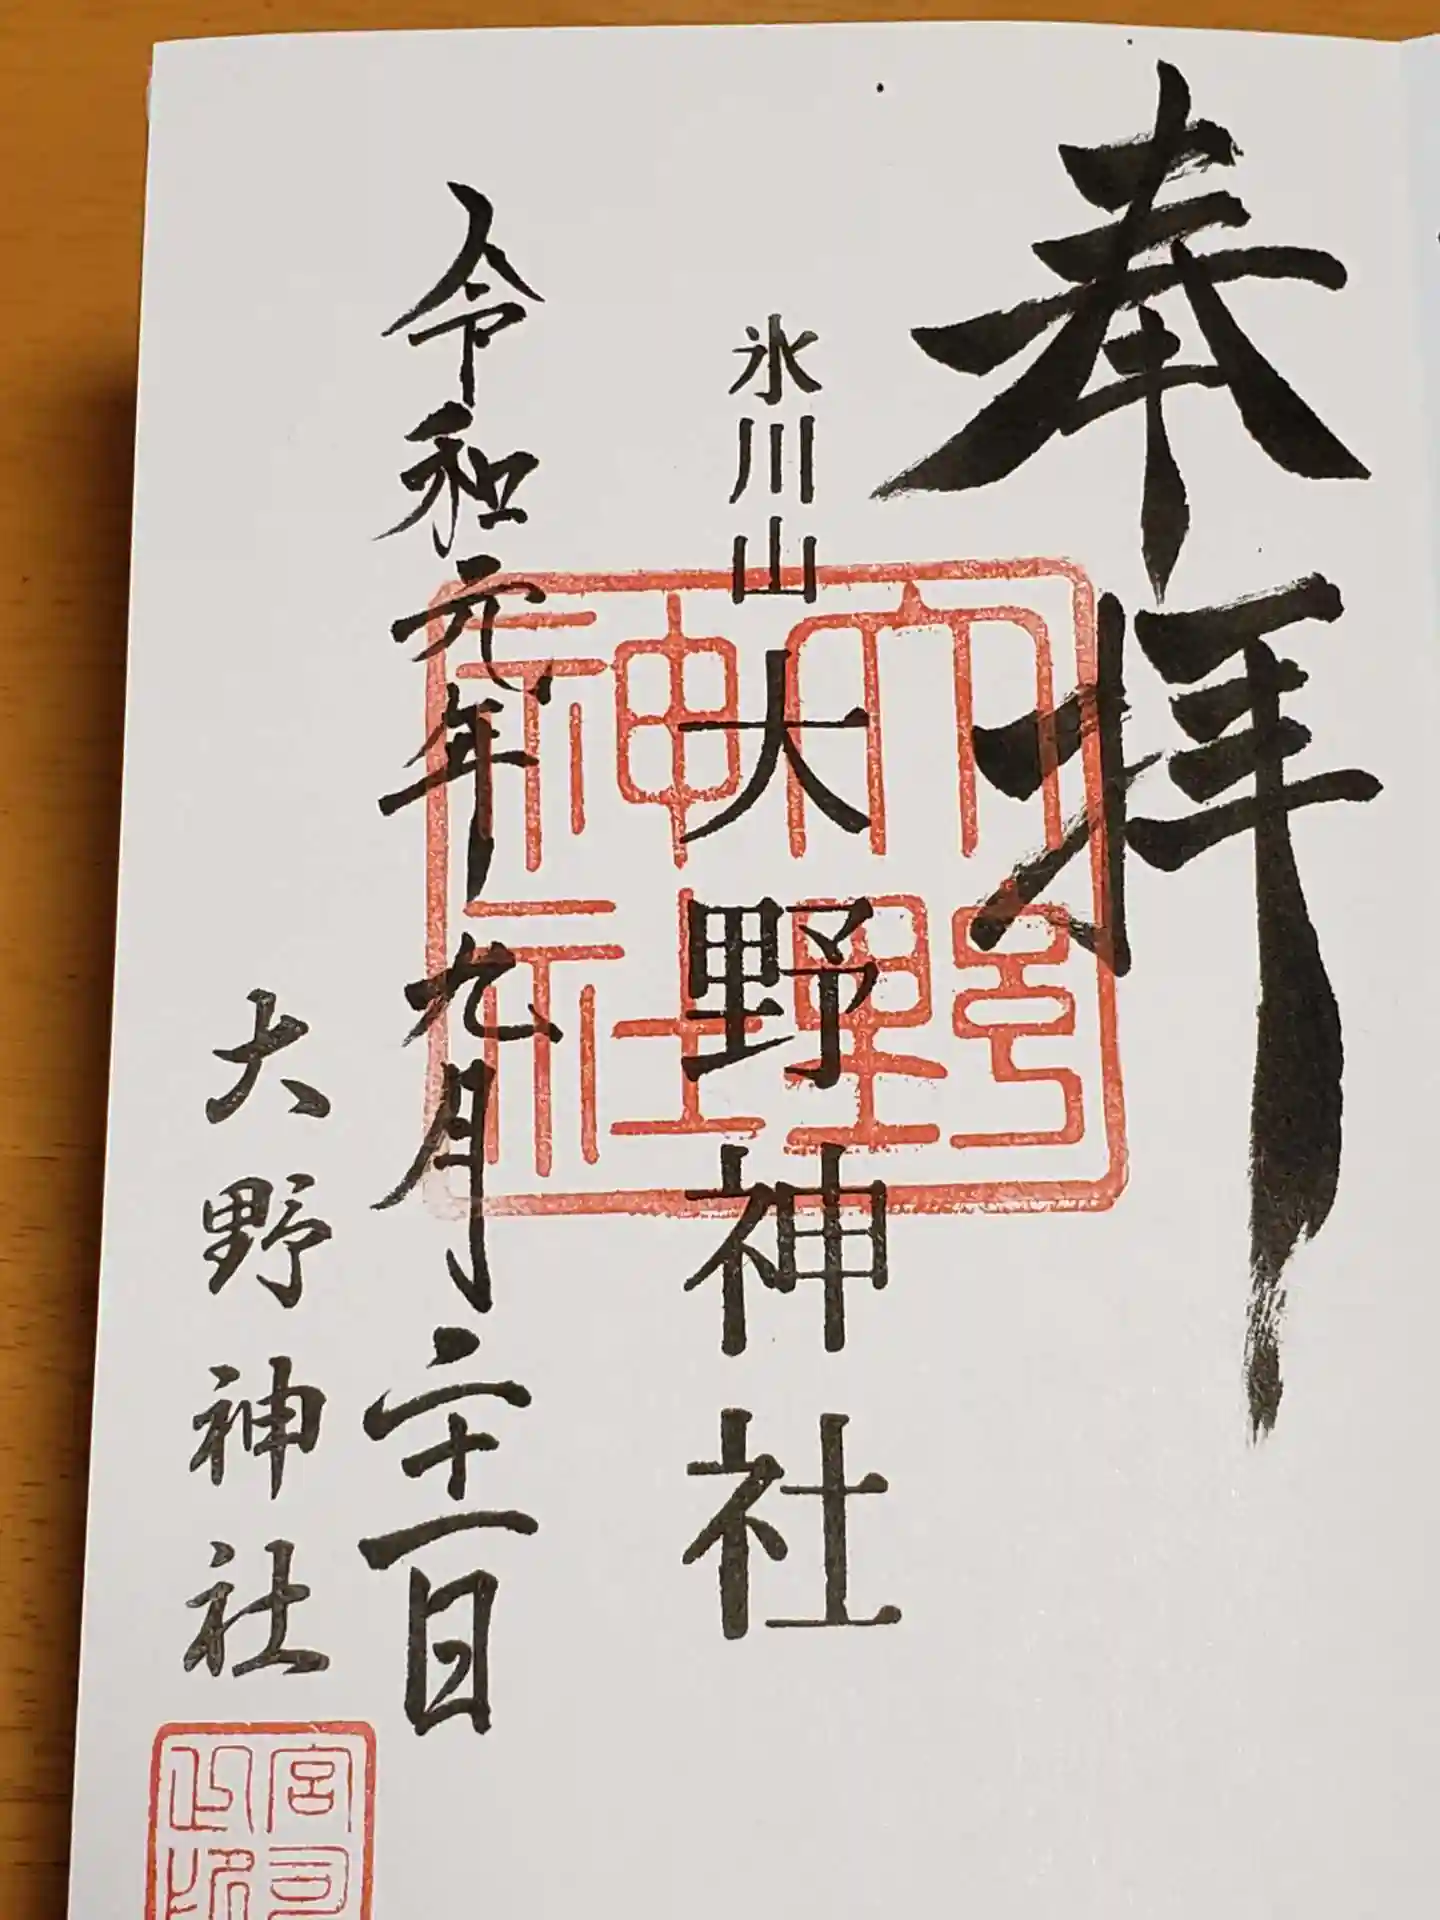 奉拝
氷川山 大野神社
大野神社
令和元年九月二十一日
大野神社
宮司